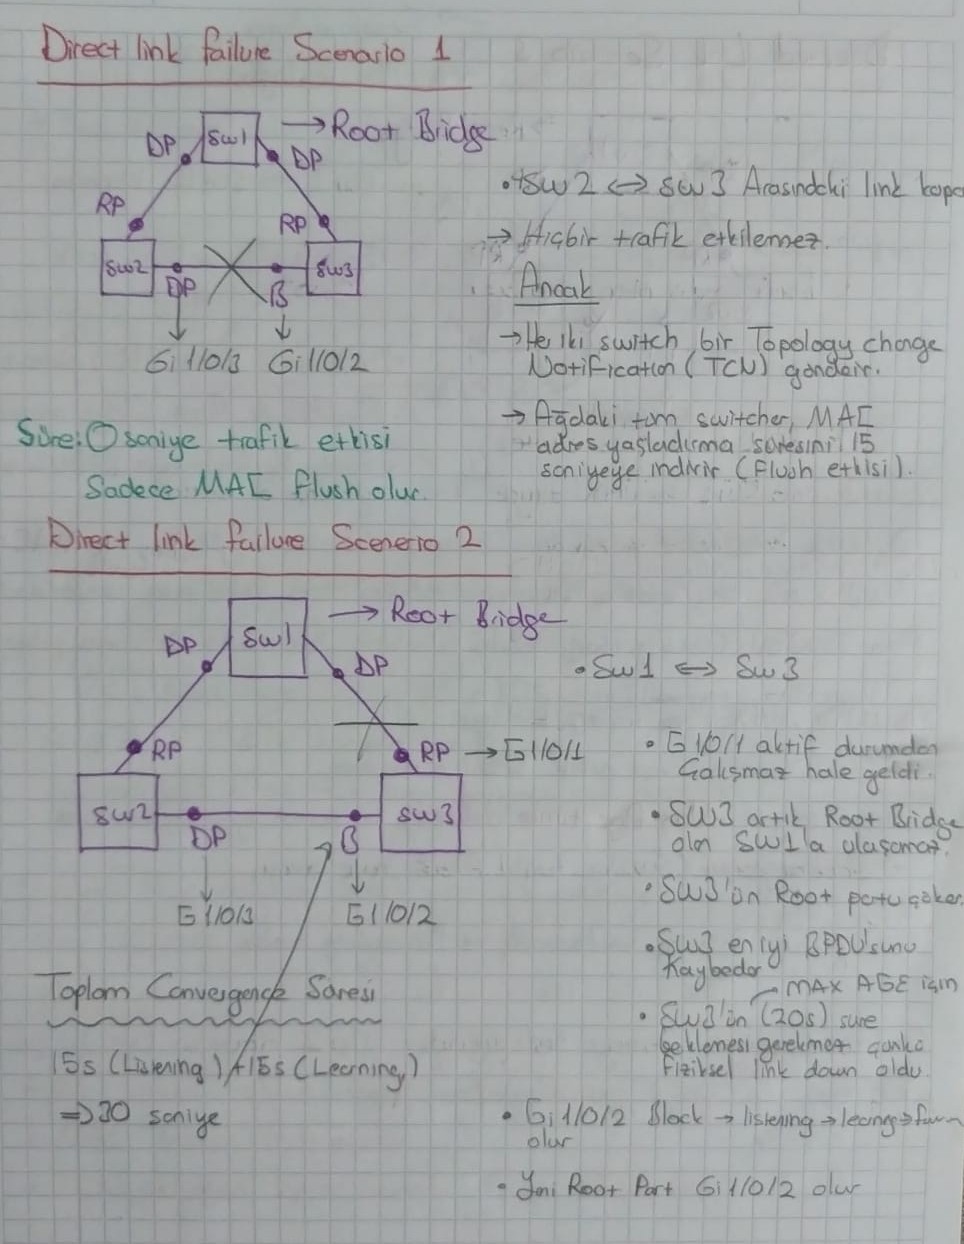 Direct link failure Scenario 1
SW1
→ Root Bridge
DP
DP
RP
RP
SW2
SW3
DP
B
Gi 1/0/3
Gi 1/0/2
• SW2 ↔ SW3 Arasındaki link
→ Hiçbir trafik etkilenmez.
Ancak
→ Her iki switch bir Topology change
Notification (TCN) gönderir.
→ Ağdaki tüm switcher, MAC
adres yaşladırma süresini 15
saniyeye indirir (Flush etkisi).
Süre: 0 saniye trafik etkisi
Sadece MAC flush olur.
Direct link failure Scenerio 2
SW1
→ Root Bridge
DP
DP
RP
RP → G1/0/1
SW2
SW3
DP
B
G1/0/3
G1/0/2
• SW1 ↔ SW3
• G1/0/1 aktif durumdan
Çalışmaz hale geldi.
• SW3 artık Root Bridge
olan SW1'a ulaşamaz.
• SW3'ün Root portu çöker.
• SW3 en iyi BPDU'sunu
Kaybeder
→ MAX AGE için
• SW3'ün (20s) süre
beklemesi gerekmez çünkü
Fiziksel link down oldu.
• Gi1/0/2 Block → listening →
olur
• Yeni Root Port Gi1/0/2 olur
Toplam Convergence Süresi
15s (Listening) + 15s (Learning)
⇒ 30 saniye